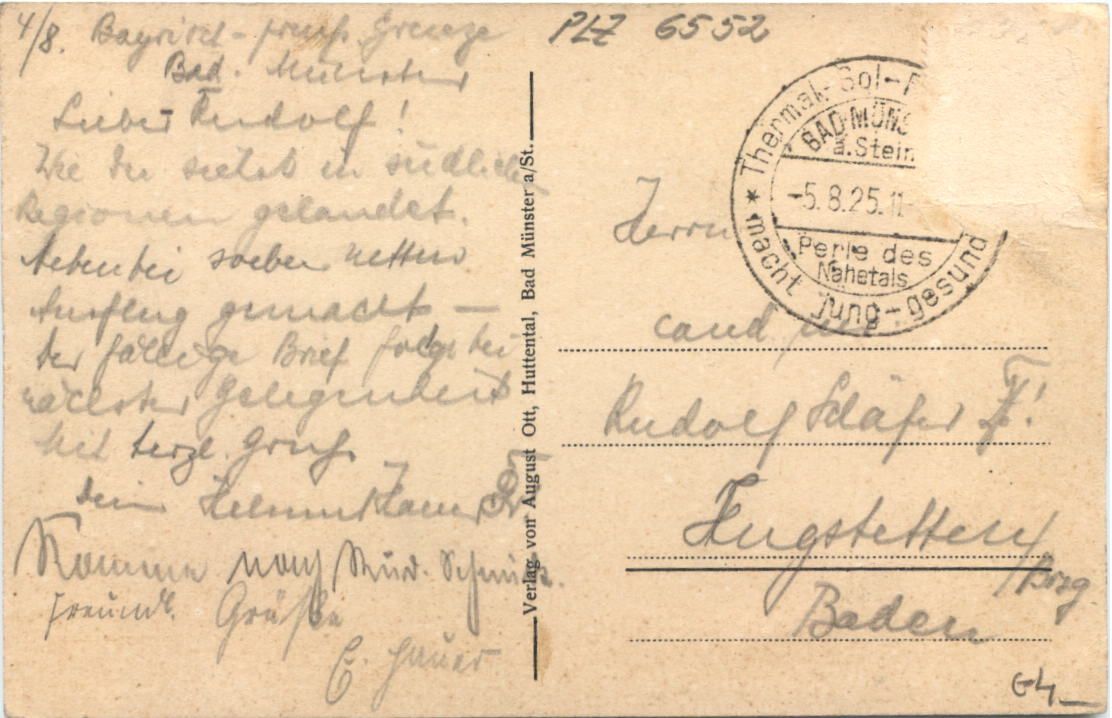 4/8. Bayrisch-preuß. Grenze
Bad. Münster
Lieber Rudolf!
Wie du siehst in südlichen
Regionen gelandet.
Nebenbei soeben netten
Ausflug gemacht —
der fällige Brief folgt bei
nächster Gelegenheit
Mit herzl. Gruß
dein Helmut Hauer
Komme nach
freundl. Grüße
E. Hauer
Verlag von August Ott, Huttental, Bad Münster a/St.
PLZ 6552
* Thermal-Sol-
BAD MÜNS
a. Stein
-5.8.25.11-
Perle des
Nahetals
macht jung-gesund
Herrn
cand
Rudolf Schäfer
Hugstetten
/Brsg
Baden